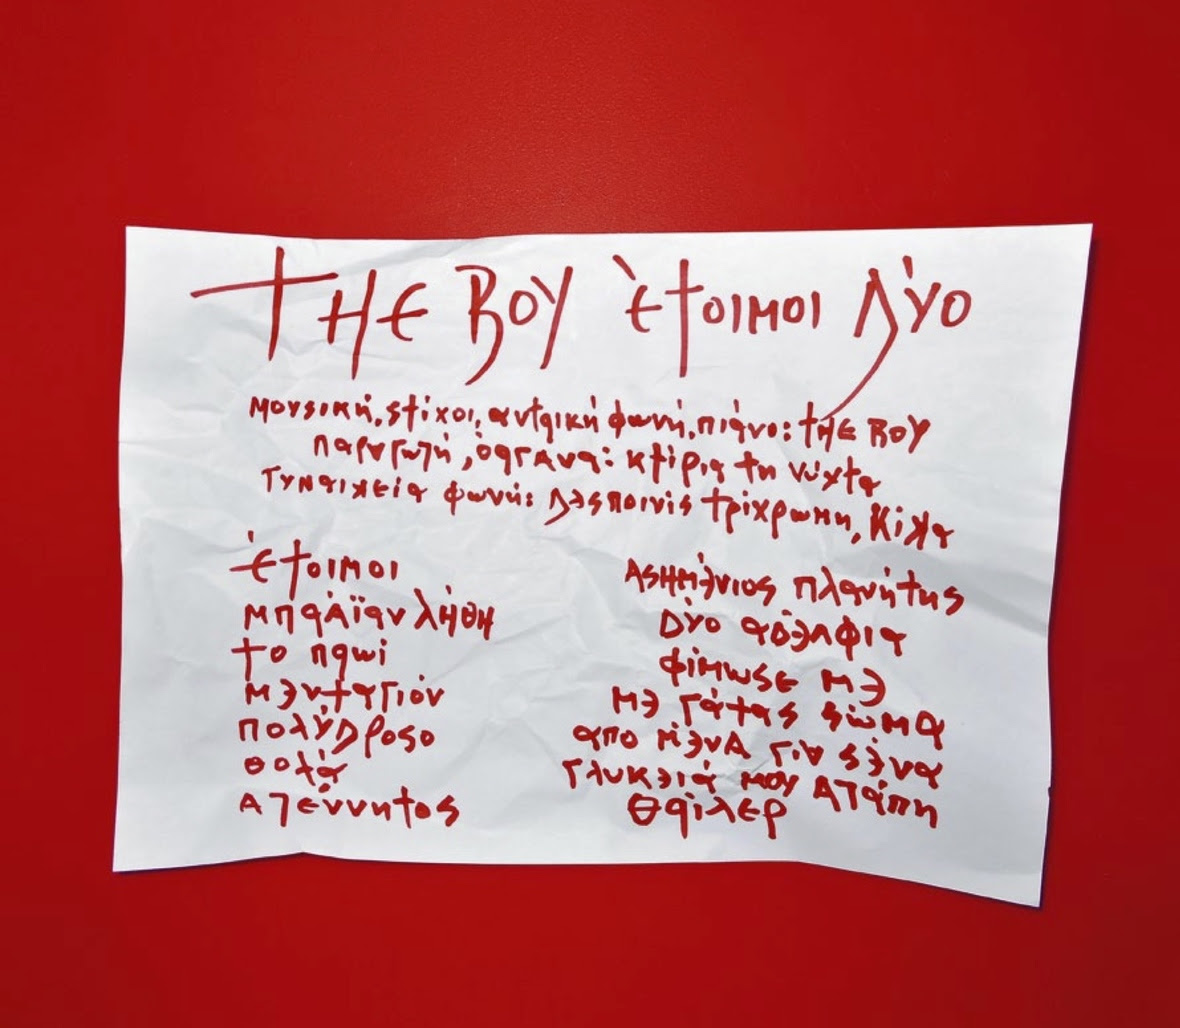 THE BOY έτοιμοι Δύο
Μουσική, στίχοι, αντρική φωνή, πιάνο: THE BOY
Παραγωγή, όργανα: κτίρια τη νύχτα
Γυναικεία φωνή: Δεσποινίς Τρίχρωμη, Κίκα
έτοιμοι
Μπάϊαν Λήθη
το πρωί
Μενταγιόν
Πολύδροσο
θολά
Αγέννητος
Ασημένιος πλανήτης
Δύο αδέλφια
Φίμωσε με
Με γάτας σώμα
από μένα για σένα
Γλυκειά μου Αγάπη
Θρίλερ